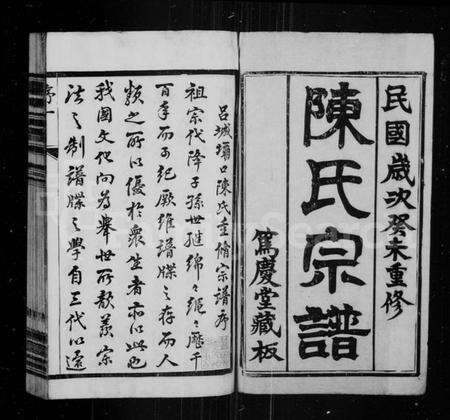 民國歲次癸未重修
陳氏宗譜
篤慶堂藏板
呂城壩口陳氏重脩宗譜序
祖宗代降子孫世繼綿々繩々歷千
百年而可紀厥維譜牒之存而人
類之所以優於衆生者亦以此也
我國文化向為舉世所歆羨宗
法之制譜牒之學自三代以還
序一